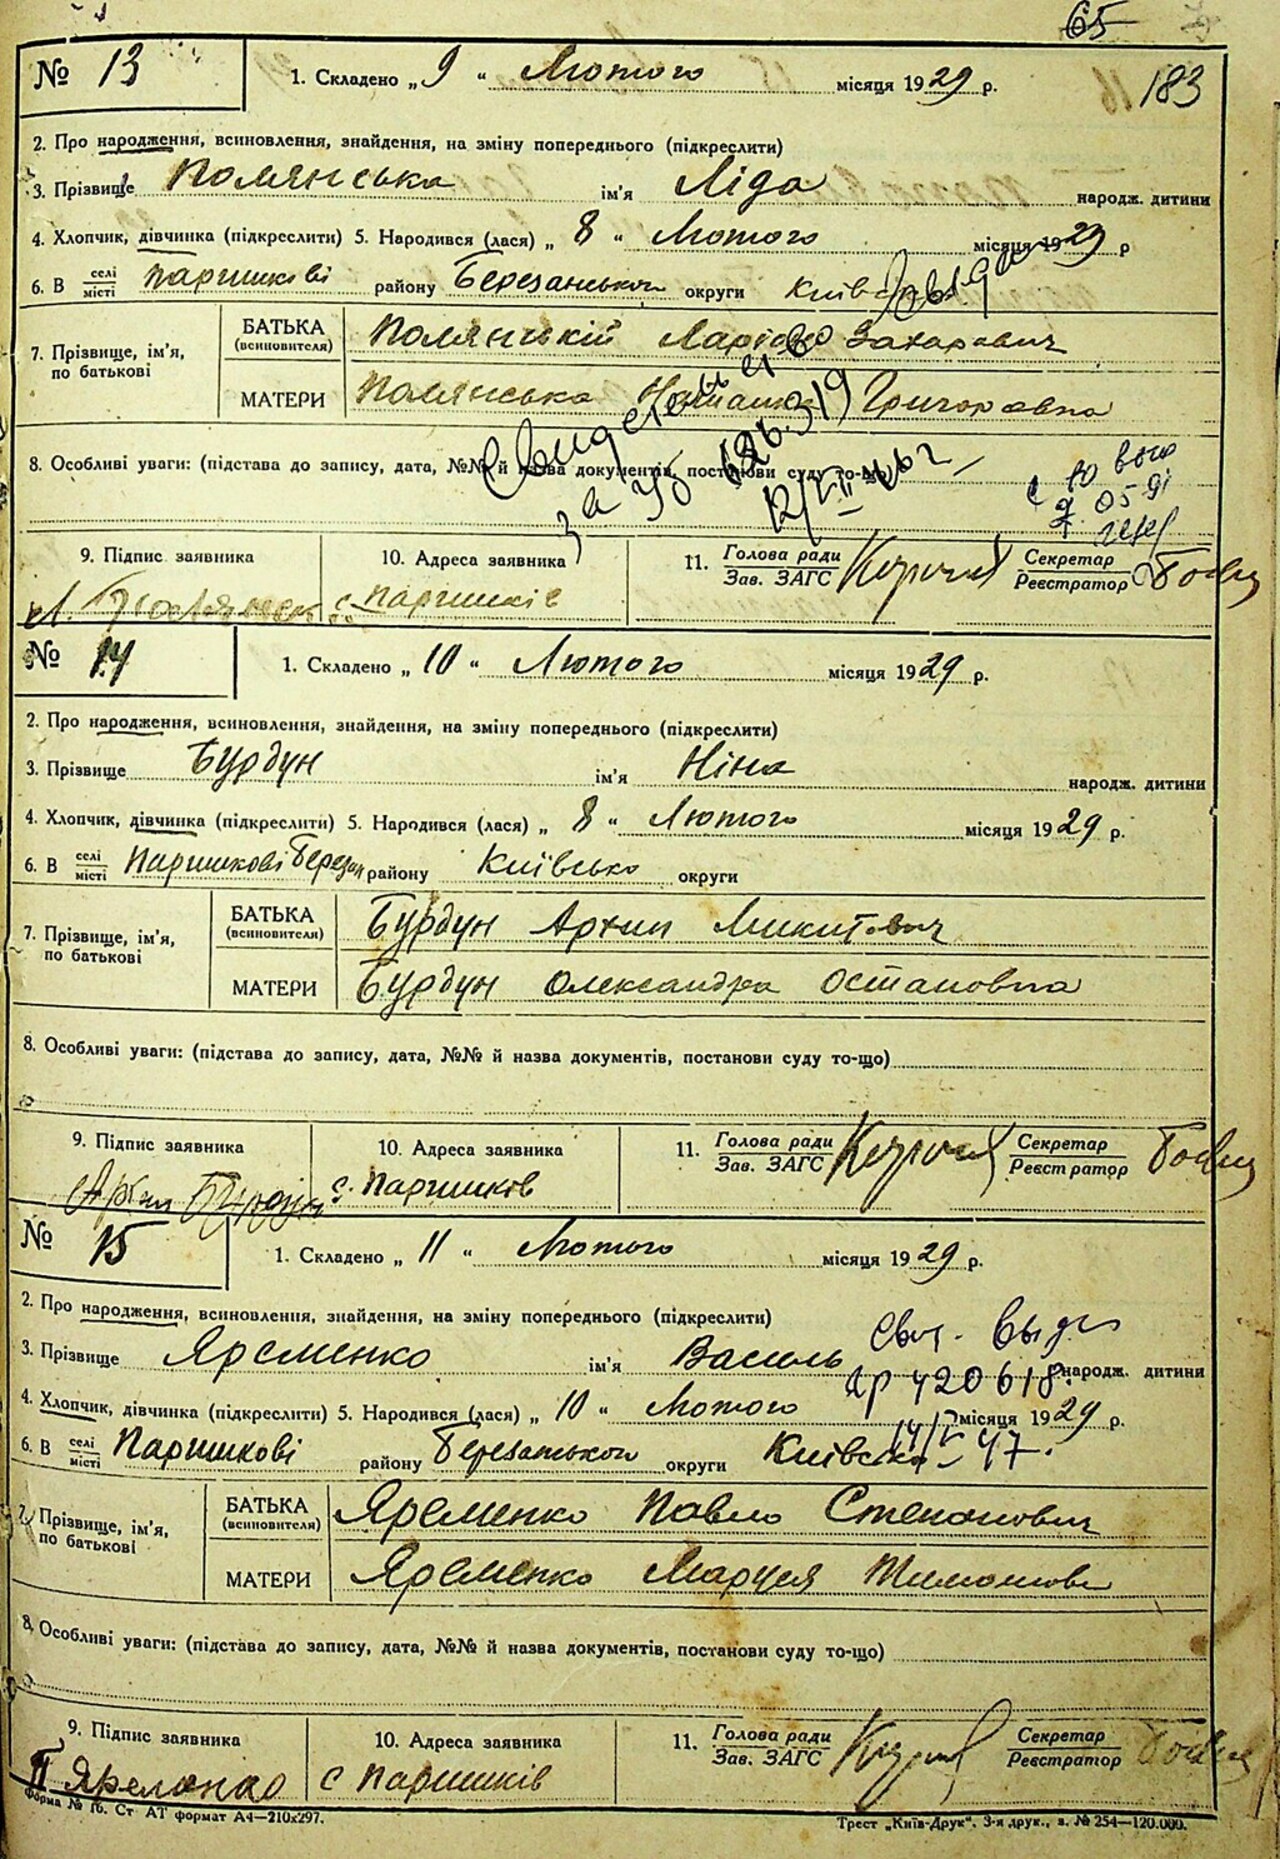 65
№ 13 1. Складено „ 9 “ Лютого місяця 1929 р. 183
2. Про народження, всиновлення, знайдення, на зміну попереднього (підкреслити)
3. Прізвище Полянська ім'я Ліда народж. дитини
4. Хлопчик, дівчинка (підкреслити) 5. Народився (лася) „ 8 “ Лютого місяця 1929 р
6. В селі місті Паришкові району Березанського округи Київсько
7. Прізвище, ім'я, по батькові
БАТЬКА (всиновителя) Полянський Ларіон Захарович
МАТЕРИ Полянська Григоровна
Свидетельство выдано
за 626319
8. Особливі уваги: (підстава до запису, дата, №№ й назва документів, постанови суду то-що)
9. Підпис заявника 10. Адреса заявника 11. Голова ради Зав. ЗАГС Секретар Реєстратор
с. Паришків
№ 14 1. Складено „ 10 “ Лютого місяця 1929 р.
2. Про народження, всиновлення, знайдення, на зміну попереднього (підкреслити)
3. Прізвище Бурдун ім'я Ніна народж. дитини
4. Хлопчик, дівчинка (підкреслити) 5. Народився (лася) „ 8 “ Лютого місяця 1929 р.
6. В селі місті Паришкові Березан району Київсько округи
7. Прізвище, ім'я, по батькові
БАТЬКА (всиновителя) Бурдун Архип Микитович
МАТЕРИ Бурдун Олександра Остаповна
8. Особливі уваги: (підстава до запису, дата, №№ й назва документів, постанови суду то-що)
9. Підпис заявника 10. Адреса заявника 11. Голова ради Зав. ЗАГС Секретар Реєстратор
Архип Бурдун с. Паришков
№ 15 1. Складено „ 11 “ Лютого місяця 1929 р.
2. Про народження, всиновлення, знайдення, на зміну попереднього (підкреслити)
свид. выд.
3. Прізвище Яременко ім'я Василь народж. дитини
420618
4. Хлопчик, дівчинка (підкреслити) 5. Народився (лася) „ 10 “ Лютого місяця 1929 р.
6. В селі місті Паришкові району Березанського округи Київсько 47.
7. Прізвище, ім'я, по батькові
БАТЬКА (всиновителя) Яременко Павло Степанович
МАТЕРИ Яременко Маруся Тимошовн
8. Особливі уваги: (підстава до запису, дата, №№ й назва документів, постанови суду то-що)
9. Підпис заявника 10. Адреса заявника 11. Голова ради Зав. ЗАГС Секретар Реєстратор
П Яременко с Паришків
Форма № 16. Ст АТ формат А4—210х297. Трест „Київ-Друк“. 3-я друк., з. № 254—120.000.